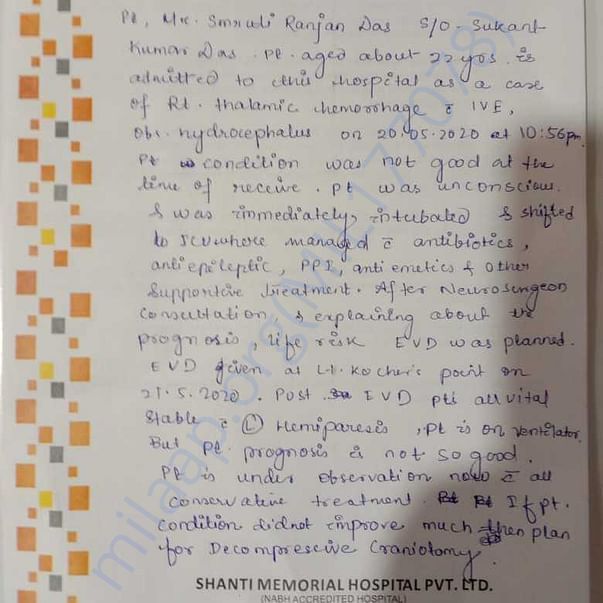 Pt, Mr. Smruti Ranjan Das S/O - Sukant
Kumar Das. Pt. aged about 22 yrs. is
admitted to this hospital as a case
of Rt. thalamic hemorrhage c̄ IVE,
obs. hydrocephalus on 20.05.2020 at 10:56pm.
Pt condition was not good at the
time of receive. Pt was unconscious.
& was immediately intubated & shifted
to ICU where managed c̄ antibiotics,
antiepileptic, PPI, antiemetics & other
Supportive treatment. After Neurosurgeon
Consultation & explaining about the
prognosis, life risk EVD was planned.
EVD given at Lt. Kocher's point on
21.5.2020. Post EVD pt's all vital
stable c̄ (L) Hemiparesis, pt is on ventilator.
But pt. prognosis is not so good.
Pt is under observation now c̄ all
conservative treatment. If pt.
condition didnot improve much then plan
for Decompressive Craniotomy.
SHANTI MEMORIAL HOSPITAL PVT. LTD.
(NABH ACCREDITED HOSPITAL)
milaap.org(MIL177078)